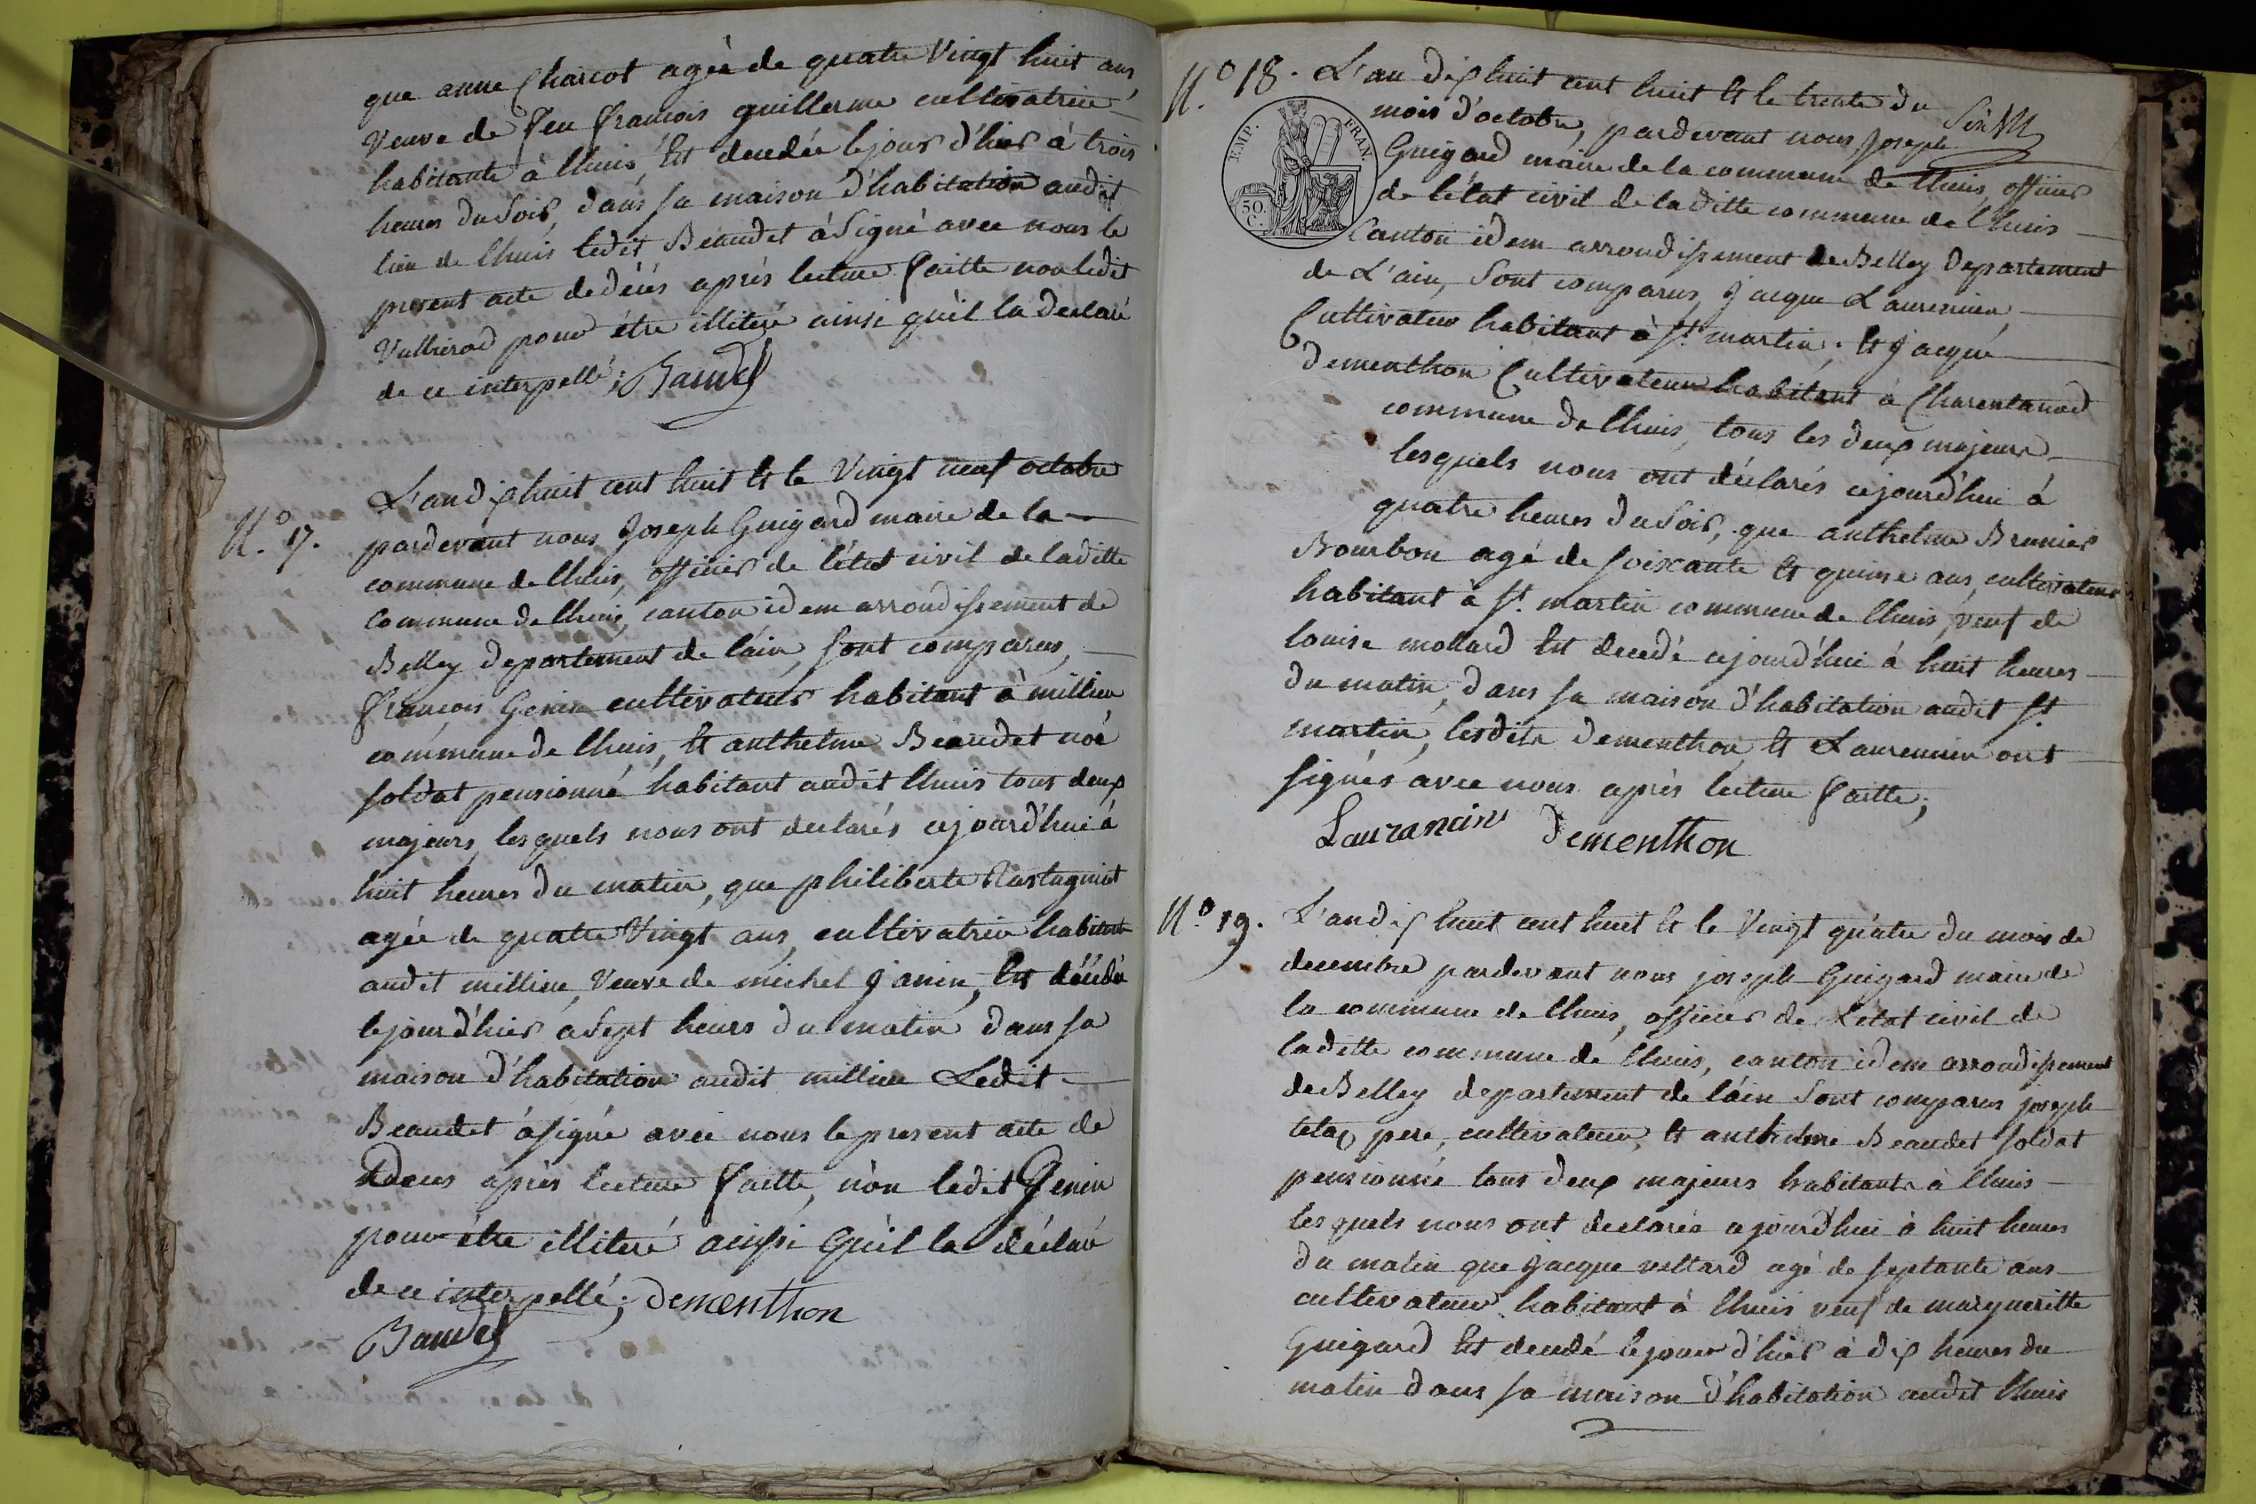 que anne Charcot agée de quatre Vingt huit ans,
Veuve de feu francois guillerme cultivatrice
habitante à lhuis, Est decedée le jour d'hier à trois
heures du Soir, dans sa maison d'habitation audit
lieu de lhuis ledit Beaudet à Signé avec nous le
present acte de décés après lecture faitte non ledit
pour être illiteré ainsi qu'il la declaré
de ce interpellé; Baudet
N.º 17.
L'an dix huit cent huit Et le Vingt neuf octobre
pardevant nous Joseph Guigard maire de la
commune de lhuis, officier de l'état civil de laditte
Commune de lhuis, canton idem arrondissement de
Belley departement de láin, sont comparus,
francois Genin cultivateur habitant à millieu
commune de lhuis, Et anthelme Beaudet
soldat pensionné habitant audit lhuis tous deux
majeurs, lesquels nous ont declarés cejourd'hui à
huit heures du matin, que philiberte Rastagniat
agée de quatre Vingt ans, cultivatrice habitant
audit millieu, Veuve de michel Janin, Est décédée
le jour d'hier a Sept heurs du matin dans sa
maison d'habitation audit millieu Ledit
Beaudet à signé avec nous le present acte de
Deces après lecture faitte, nòn ledit Genin
pour être illiteré ainssi Qu'il la déclaré
de ce interpellé; Dementhon
Baudet
N.º 18. L'an dix huit cent huit Et le trente du
mois d'octobre, pardevant nous Joseph
Guigard maire de la commune de lhuis, officier
de l'état civil de laditte commune de lhuis
Canton idem arrondissement de Belley Departement
de L'ain, Sont comparus, Jacque Laurencin,
Cultivateur habitant à St. martin; Et Jacque
Dementhon Cultivateur habitant à Charentanod
commune de lhuis, tous les deux majeurs
lesquels nous ont déclarés cejourd'hui à
quatre heures du Soir, que anthelme Brunier
Bourbon agé de soixante Et quinse ans, cultivateur
habitant à St. martin commune de lhuis, veuf de
louise mollard Est decedé cejourd'hui à huit heures
du matin, dans sa maison d'habitation audit St.
martin, lesdits Dementhon Et Laurencin ont
signés avec nous après lecture faitte;
Laurancin Dementhon
EMP. FRAN.
50.
C.
N.º 19. L'an dix huit cent huit Et le Vingt quatre du mois de
decembre pardevant nous joseph Guigard maire de
la commune de lhuis, officier de L'état civil de
laditte commune de lhuis, canton idem arrondissement
de Belley departement de láin Sont comparus joseph
pere, cultivateur, Et anthelme Beaudet soldat
pensionné tous deux majeurs habitants à lhuis
lesquels nous ont declarés cejourd'hui à huit heures
du matin que Jacque vettard agé de septante ans
cultivateur habitant à lhuis veuf de margueritte
Guigard Est decedé le jour d'hier à dix heures du
matin dans sa maison d'habitation audit lhuis